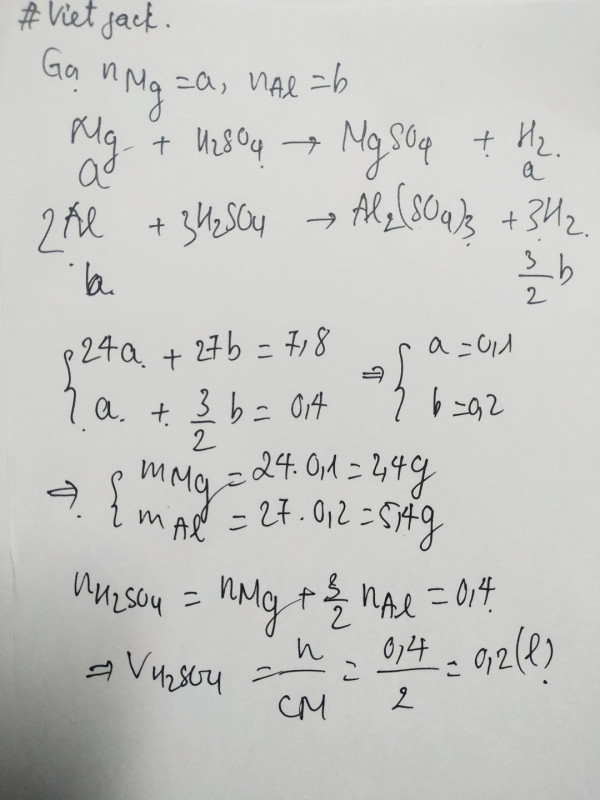 #Vietjack.
Gọi nMg = a, nAl = b
Mg + H2SO4 → MgSO4 + H2.
a a
2Al + 3H2SO4 → Al2(SO4)3 + 3H2.
b. 3/2 b
{ 24a + 27b = 7,8 ⇒ { a = 0,1
a + 3/2 b = 0,4 b = 0,2
⇒ { mMg = 24. 0,1 = 2,4g
mAl = 27. 0,2 = 5,4g
nH2SO4 = nMg + 3/2 nAl = 0,4
⇒ VH2SO4 = n/CM = 0,4/2 = 0,2 (l)